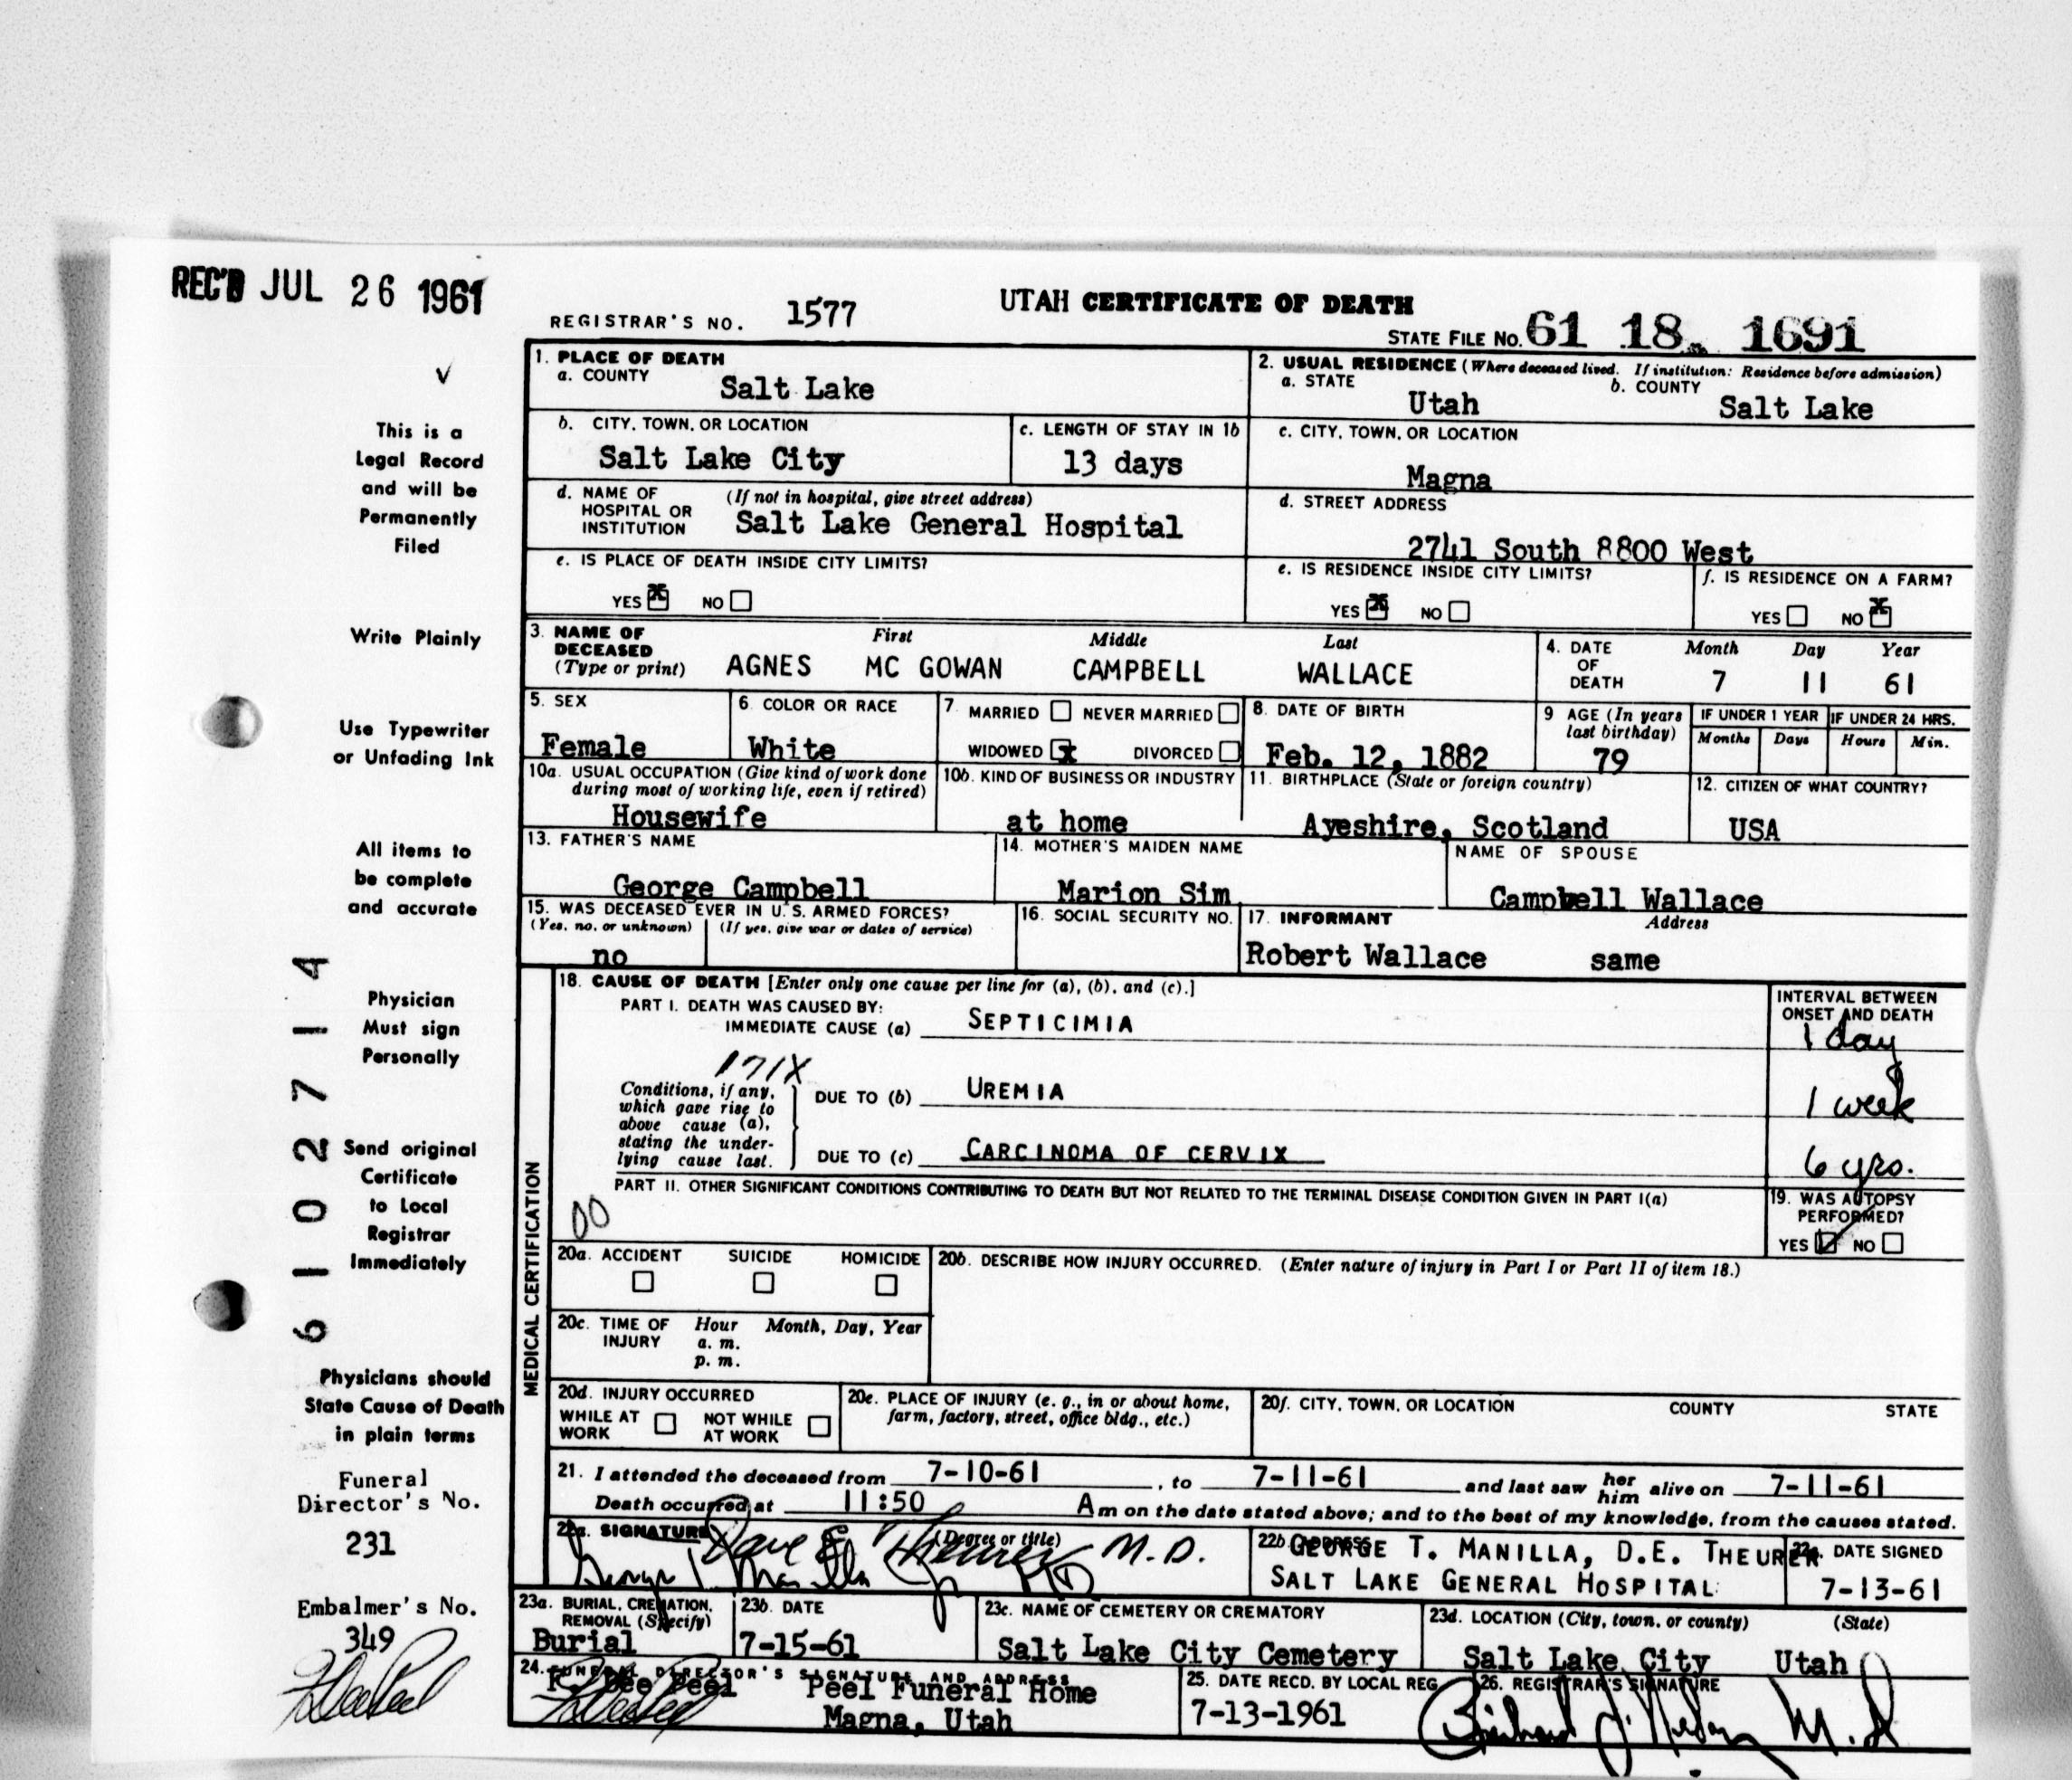 REC'D JUL 26 1961
UTAH CERTIFICATE OF DEATH
REGISTRAR'S NO. 1577
STATE FILE No. 61 18 1691
This is a
Legal Record
and will be
Permanently
Filed
Write Plainly
Use Typewriter
or Unfading Ink
All items to
be complete
and accurate
Physician
Must sign
Personally
Send original
Certificate
to Local
Registrar
Immediately
Physicians should
State Cause of Death
in plain terms
Funeral
Director's No.
231
Embalmer's No.
349
61027714
1. PLACE OF DEATH
a. COUNTY
Salt Lake
2. USUAL RESIDENCE (Where deceased lived. If institution: Residence before admission)
a. STATE b. COUNTY
Utah Salt Lake
b. CITY, TOWN, OR LOCATION
Salt Lake City
c. LENGTH OF STAY IN 1b
13 days
c. CITY, TOWN, OR LOCATION
Magna
d. NAME OF (If not in hospital, give street address)
HOSPITAL OR
INSTITUTION
Salt Lake General Hospital
d. STREET ADDRESS
2741 South 8800 West
e. IS PLACE OF DEATH INSIDE CITY LIMITS?
YES X NO
e. IS RESIDENCE INSIDE CITY LIMITS?
YES X NO
f. IS RESIDENCE ON A FARM?
YES NO X
3. NAME OF First Middle Last
DECEASED
(Type or print) AGNES MC GOWAN CAMPBELL WALLACE
4. DATE Month Day Year
OF
DEATH 7 11 61
5. SEX
Female
6. COLOR OR RACE
White
7. MARRIED NEVER MARRIED
WIDOWED X DIVORCED
8. DATE OF BIRTH
Feb. 12, 1882
9 AGE (In years
last birthday)
79
IF UNDER 1 YEAR IF UNDER 24 HRS.
Months Days Hours Min.
10a. USUAL OCCUPATION (Give kind of work done
during most of working life, even if retired)
Housewife
10b. KIND OF BUSINESS OR INDUSTRY
at home
11. BIRTHPLACE (State or foreign country)
Ayeshire, Scotland
12. CITIZEN OF WHAT COUNTRY?
USA
13. FATHER'S NAME
George Campbell
14. MOTHER'S MAIDEN NAME
Marion Sim
NAME OF SPOUSE
Campbell Wallace
15. WAS DECEASED EVER IN U.S. ARMED FORCES?
(Yes, no, or unknown) (If yes, give war or dates of service)
no
16. SOCIAL SECURITY NO.
17. INFORMANT Address
Robert Wallace same
MEDICAL CERTIFICATION
18. CAUSE OF DEATH [Enter only one cause per line for (a), (b), and (c).]
PART I. DEATH WAS CAUSED BY:
IMMEDIATE CAUSE (a) SEPTICIMIA
INTERVAL BETWEEN
ONSET AND DEATH
1 day
171X
Conditions, if any,
which gave rise to
above cause (a),
stating the under-
lying cause last.
DUE TO (b) UREMIA
1 week
DUE TO (c) CARCINOMA OF CERVIX
6 yrs.
PART II. OTHER SIGNIFICANT CONDITIONS CONTRIBUTING TO DEATH BUT NOT RELATED TO THE TERMINAL DISEASE CONDITION GIVEN IN PART I(a)
00
19. WAS AUTOPSY
PERFORMED?
YES NO
20a. ACCIDENT SUICIDE HOMICIDE
20b. DESCRIBE HOW INJURY OCCURRED. (Enter nature of injury in Part I or Part II of item 18.)
20c. TIME OF Hour Month, Day, Year
INJURY a. m.
p. m.
20d. INJURY OCCURRED
WHILE AT NOT WHILE
WORK AT WORK
20e. PLACE OF INJURY (e. g., in or about home,
farm, factory, street, office bldg., etc.)
20f. CITY, TOWN, OR LOCATION COUNTY STATE
21. I attended the deceased from 7-10-61, to 7-11-61 and last saw her him alive on 7-11-61
Death occurred at 11:50 Am on the date stated above; and to the best of my knowledge, from the causes stated.
22a. SIGNATURE (Degree or title)
M.D.
22b. ADDRESS
GEORGE T. MANILLA, D.E. THEURER
SALT LAKE GENERAL HOSPITAL
22c. DATE SIGNED
7-13-61
23a. BURIAL, CREMATION,
REMOVAL (Specify)
Burial
23b. DATE
7-15-61
23c. NAME OF CEMETERY OR CREMATORY
Salt Lake City Cemetery
23d. LOCATION (City, town, or county) (State)
Salt Lake City Utah
24. FUNERAL DIRECTOR'S SIGNATURE AND ADDRESS
Dee Peel Peel Funeral Home
Magna, Utah
25. DATE RECD. BY LOCAL REG.
7-13-1961
26. REGISTRAR'S SIGNATURE